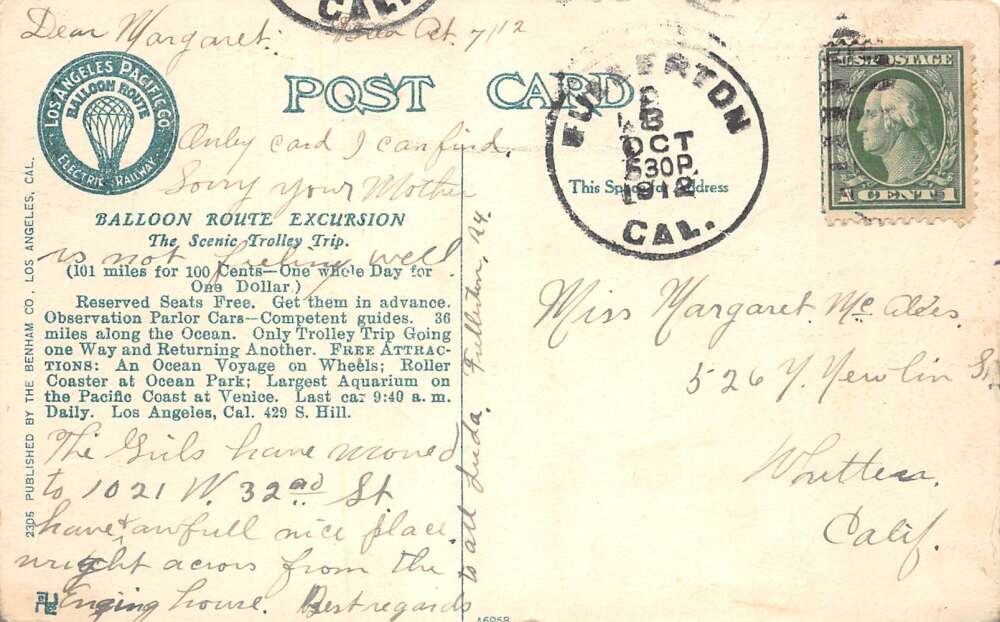 Dear Margaret: Brea Oct. 7/12
CAL.
LOS ANGELES PACIFIC CO.
BALLOON ROUTE
ELECTRIC RAILWAY
POST CARD
Only card I can find.
Sorry your Mother
is not feeling well.
BALLOON ROUTE EXCURSION
The Scenic Trolley Trip.
(101 miles for 100 Cents—One whole Day for
One Dollar.)
Reserved Seats Free. Get them in advance.
Observation Parlor Cars—Competent guides. 36
miles along the Ocean. Only Trolley Trip Going
one Way and Returning Another. FREE ATTRAC-
TIONS: An Ocean Voyage on Wheels; Roller
Coaster at Ocean Park; Largest Aquarium on
the Pacific Coast at Venice. Last car 9:40 a. m.
Daily. Los Angeles, Cal. 429 S. Hill.
The Girls have moved
to 1021 W. 32nd St
have awfull nice place.
wright across from the
Enging house. Best regards
to all Fullerton,
2305 PUBLISHED BY THE BENHAM CO., LOS ANGELES, CAL.
A6958
FULLERTON
8
OCT
530P
1912
CAL.
This Space for Address
U.S. POSTAGE
1 CENT 1
Miss Margaret
526 Newlin S
Whittier
Calif.